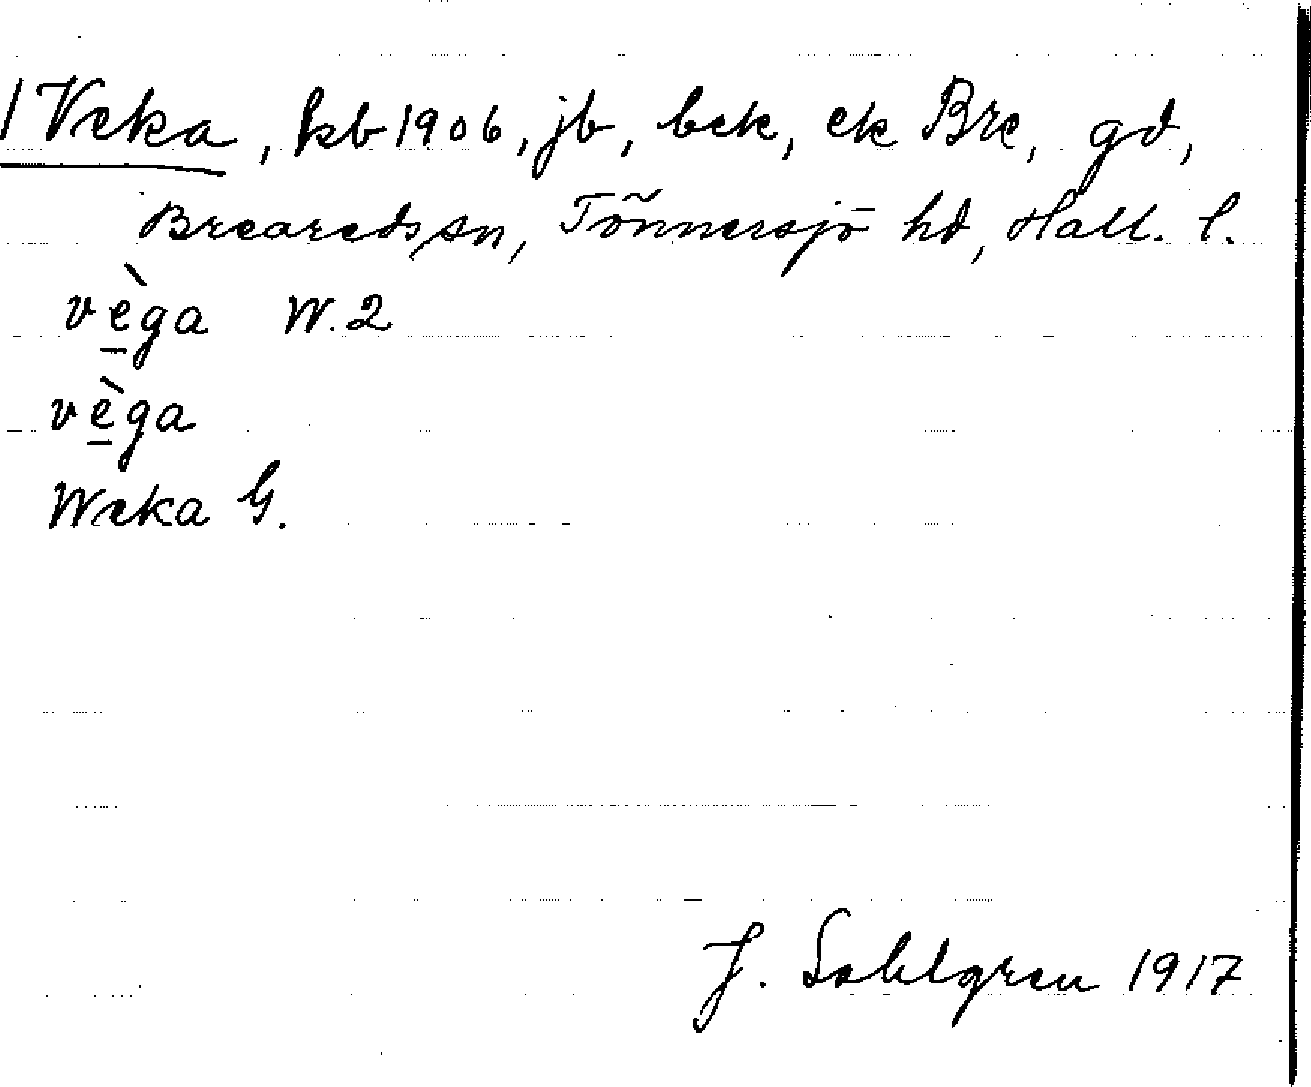 1 Veka, kb 1906, jb, bek, ek Bre, gd,
Breareds sn, Tönnersjö hd, Hall. l.
vèga W. 2
vèga
Weka G.
J. Sahlgren 1917